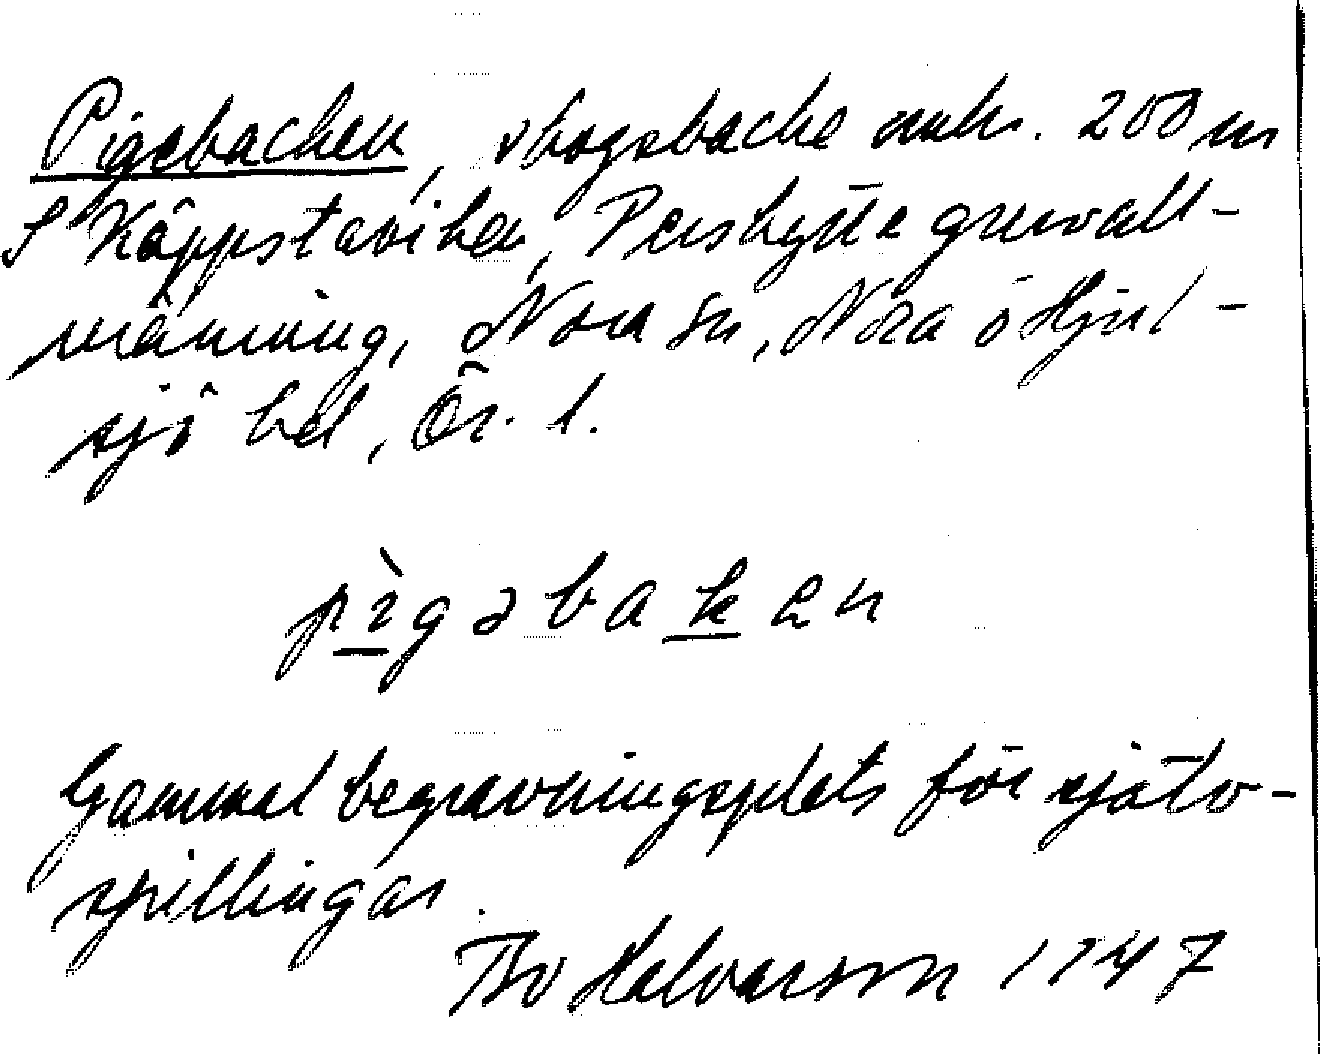 Pigebacken, skogsbacke omkr. 200 m
S Käppstaviken, Pershytte gruvall-
männing, Nora sn, Nora o Hjul-
sjö bd, Ör. l.
pìgəbaken
Gammal begravningsplats för självs-
spillingar.
Bo Halvarson 1947